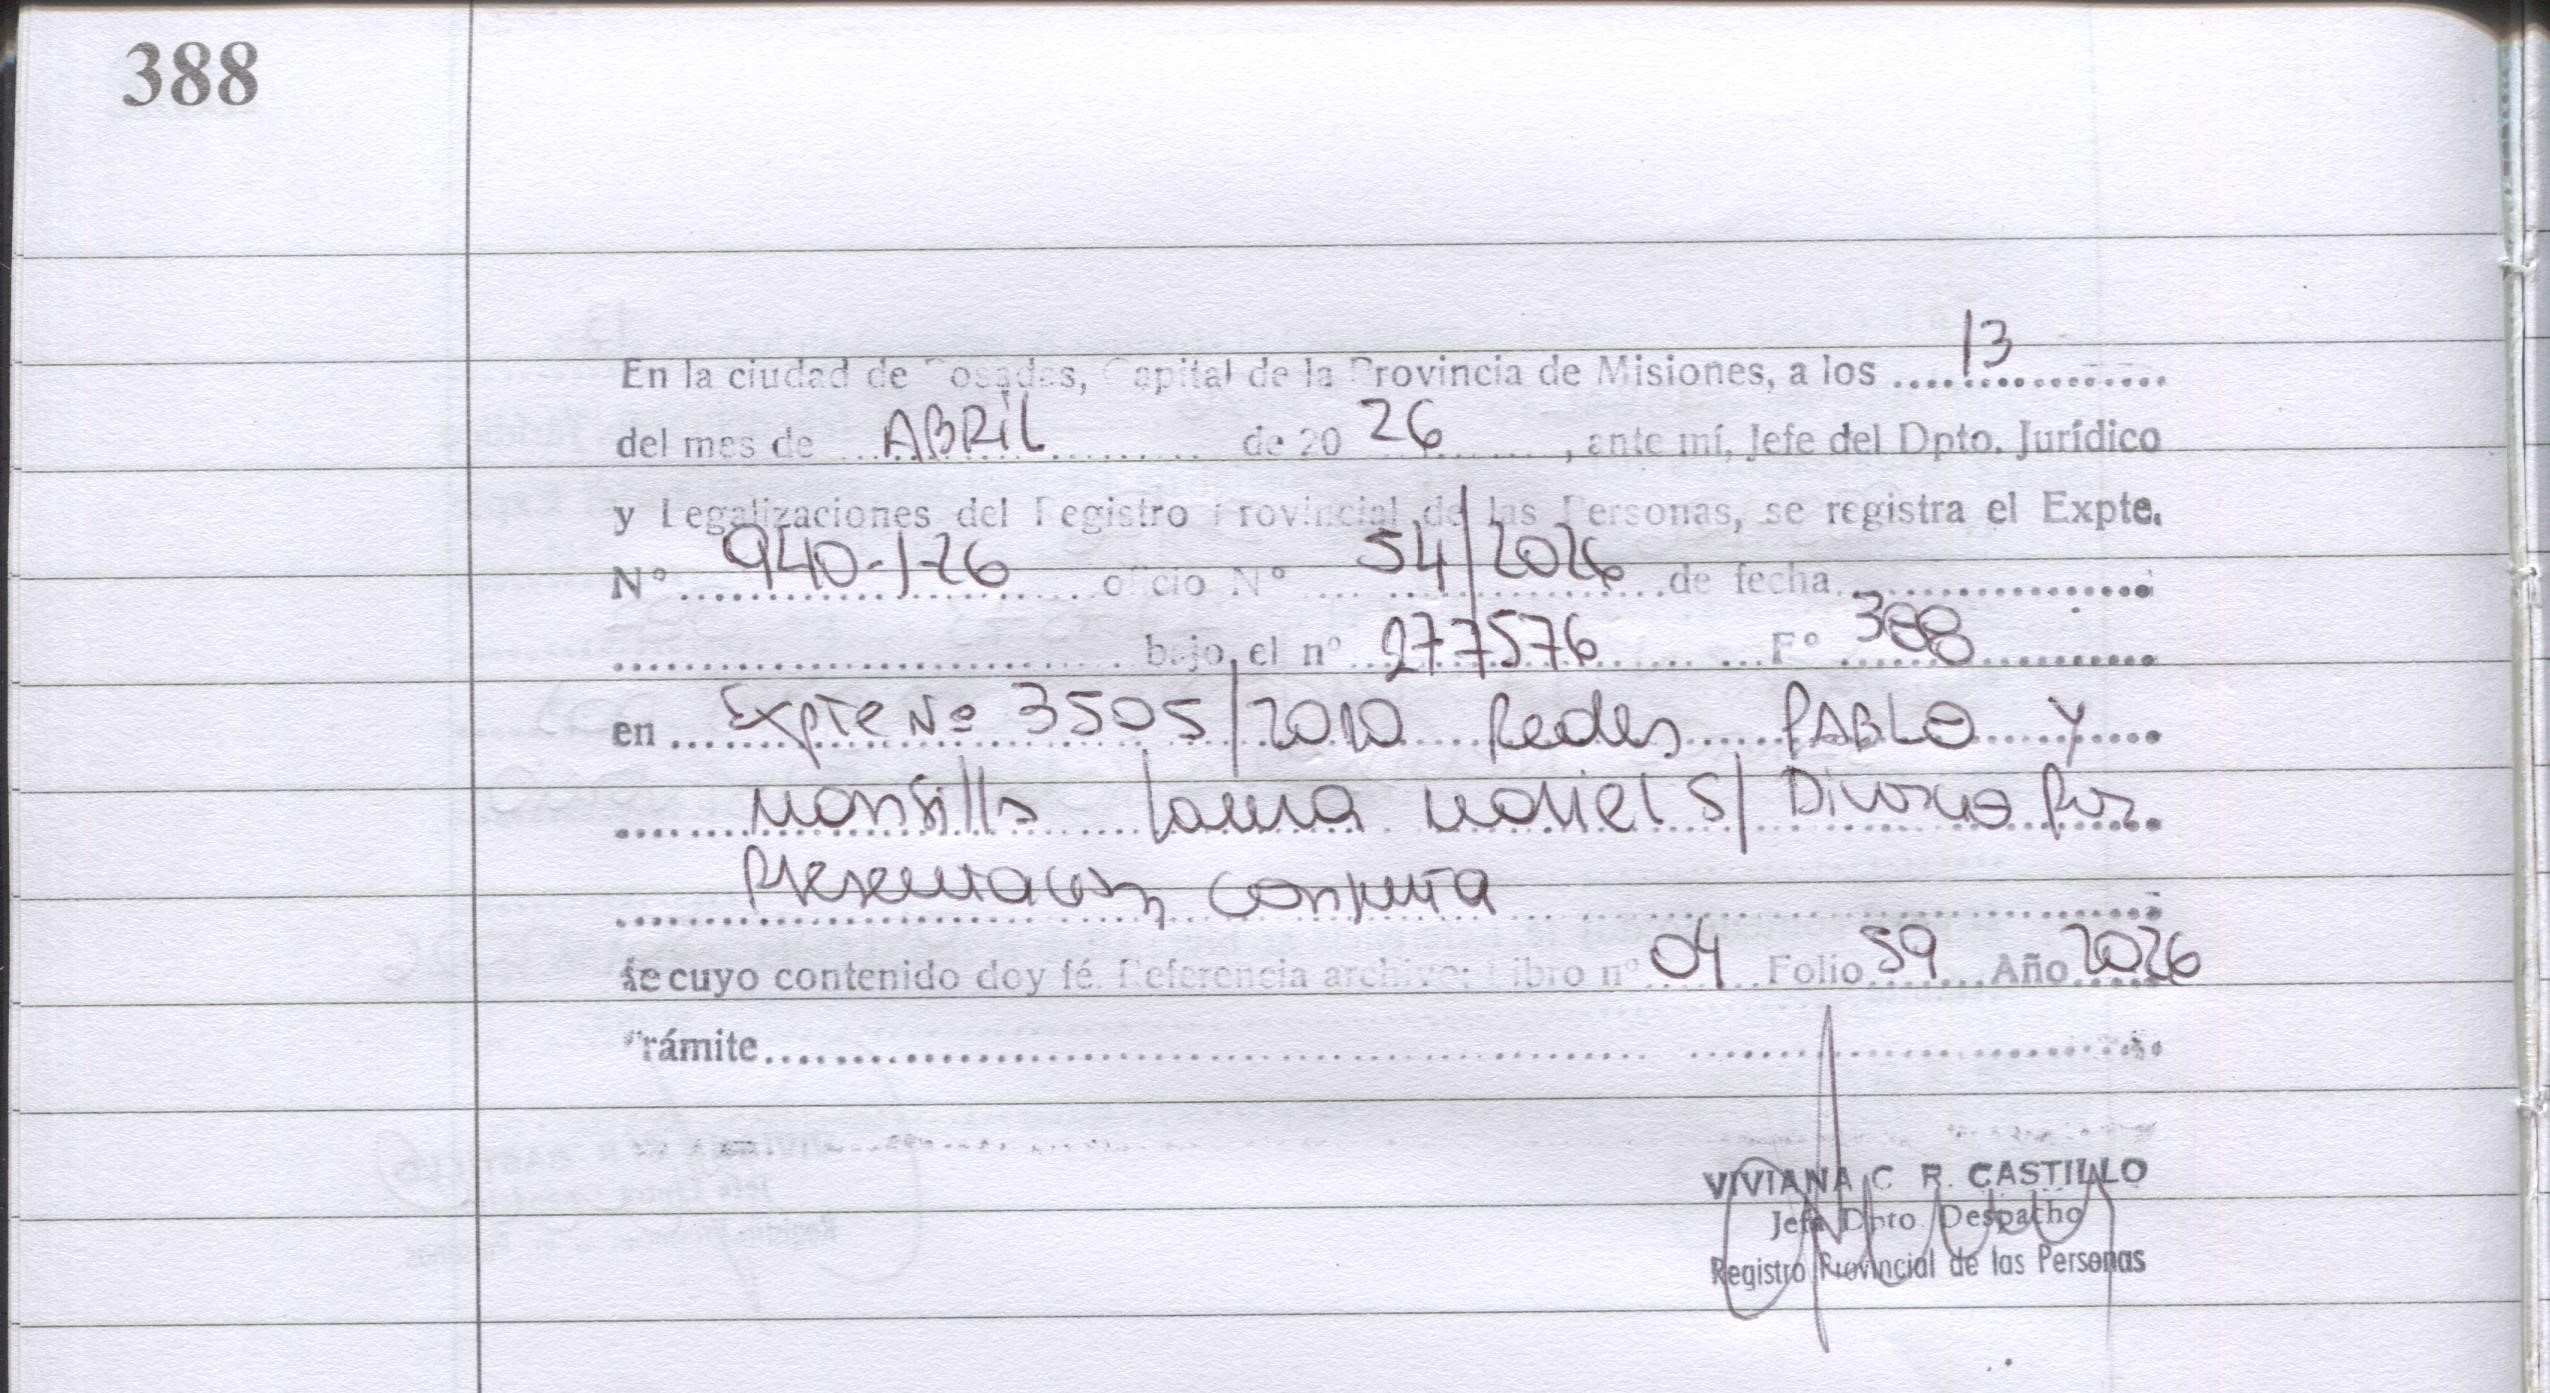 388
En la ciudad de Posadas, Capital de la Provincia de Misiones, a los 13
del mes de ABRIL de 20 26, ante mí, Jefe del Dpto. Jurídico
y Legalizaciones del Registro Provincial de las Personas, se registra el Expte.
N° 940-J-26 oficio N° 54/2026 de fecha
bajo el n° 277576 F° 388
en Expte Nº 3505/2010 PABLO Y
Mansilla Laura Mariel S/ Divorcio Por
Presentacion Conjunta
de cuyo contenido doy fé. Referencia archivo: Libro n° 04 Folio 59 Año 2026
Trámite
VIVIANA C. R. CASTILLO
Jefa Dpto. Despacho
Registro Provincial de las Personas